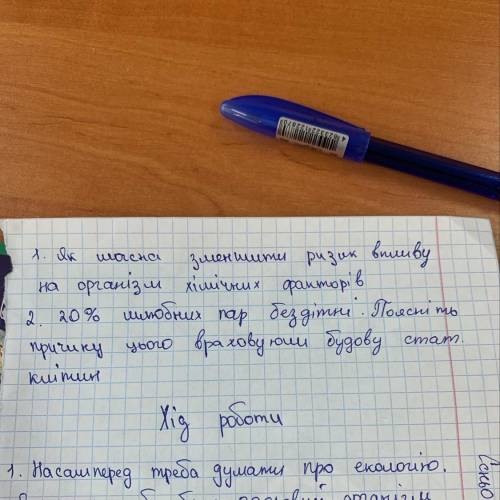 1. Як можна зменшити ризик впливу
на організм хімічних факторів
2. 20% шлюбних пар бездітні. Поясніть
причину цього враховуючи будову стат.
клітин
Хід роботи
1. Насамперед треба думати про екологію.